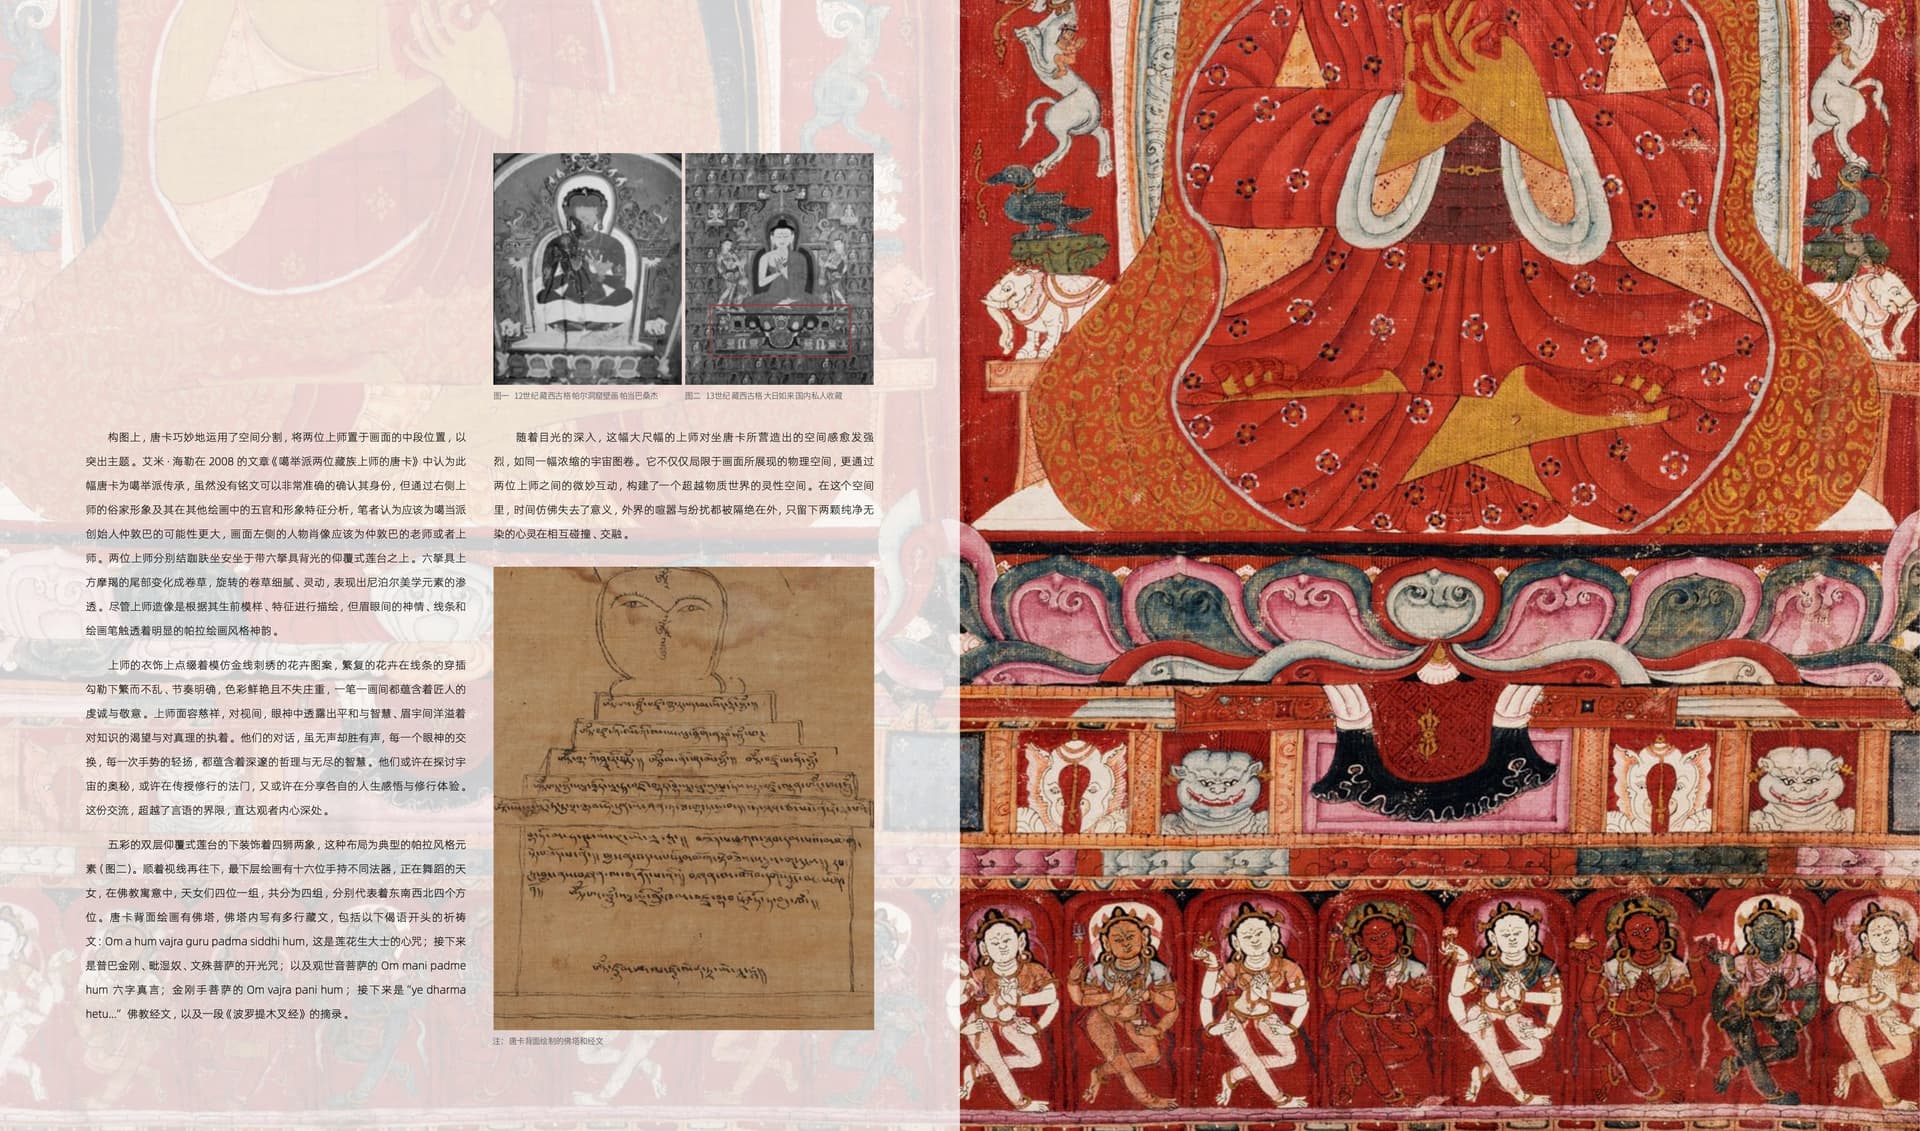 图一 12世纪 藏西古格 帕尔洞窟壁画 帕当巴桑杰
图二 13世纪 藏西古格 大日如来 国内私人收藏
构图上，唐卡巧妙地运用了空间分割，将两位上师置于画面的中段位置，以
突出主题。艾米·海勒在 2008 的文章《噶举派两位藏族上师的唐卡》中认为此
幅唐卡为噶举派传承，虽然没有铭文可以非常准确的确认其身份，但通过右侧上
师的俗家形象及其在其他绘画中的五官和形象特征分析，笔者认为应该为噶当派
创始人仲敦巴的可能性更大，画面左侧的人物肖像应该为仲敦巴的老师或者上
师。两位上师分别结跏趺坐安坐于带六拏具背光的仰覆式莲台之上。六拏具上
方摩羯的尾部变化成卷草，旋转的卷草细腻、灵动，表现出尼泊尔美学元素的渗
透。尽管上师造像是根据其生前模样、特征进行描绘，但眉眼间的神情、线条和
绘画笔触透着明显的帕拉绘画风格神韵。
上师的衣饰上点缀着模仿金线刺绣的花卉图案，繁复的花卉在线条的穿插
勾勒下繁而不乱、节奏明确，色彩鲜艳且不失庄重，一笔一画间都蕴含着匠人的
虔诚与敬意。上师面容慈祥，对视间，眼神中透露出平和与智慧、眉宇间洋溢着
对知识的渴望与对真理的执着。他们的对话，虽无声却胜有声，每一个眼神的交
换，每一次手势的轻扬，都蕴含着深邃的哲理与无尽的智慧。他们或许在探讨宇
宙的奥秘，或许在传授修行的法门，又或许在分享各自的人生感悟与修行体验。
这份交流，超越了言语的界限，直达观者内心深处。
五彩的双层仰覆式莲台的下装饰着四狮两象，这种布局为典型的帕拉风格元
素（图二）。顺着视线再往下，最下层绘画有十六位手持不同法器，正在舞蹈的天
女，在佛教寓意中，天女们四位一组，共分为四组，分别代表着东南西北四个方
位。唐卡背面绘画有佛塔，佛塔内写有多行藏文，包括以下偈语开头的祈祷
文：Om a hum vajra guru padma siddhi hum，这是莲花生大士的心咒；接下来
是普巴金刚、毗湿奴、文殊菩萨的开光咒；以及观世音菩萨的 Om mani padme
hum 六字真言；金刚手菩萨的 Om vajra pani hum；接下来是 "ye dharma
hetu..." 佛教经文，以及一段《波罗提木叉经》的摘录。
随着目光的深入，这幅大尺幅的上师对坐唐卡所营造出的空间感愈发强
烈，如同一幅浓缩的宇宙图卷。它不仅仅局限于画面所展现的物理空间，更通过
两位上师之间的微妙互动，构建了一个超越物质世界的灵性空间。在这个空间
里，时间仿佛失去了意义，外界的喧嚣与纷扰都被隔绝在外，只留下两颗纯净无
染的心灵在相互碰撞、交融。
注：唐卡背面绘制的佛塔和经文